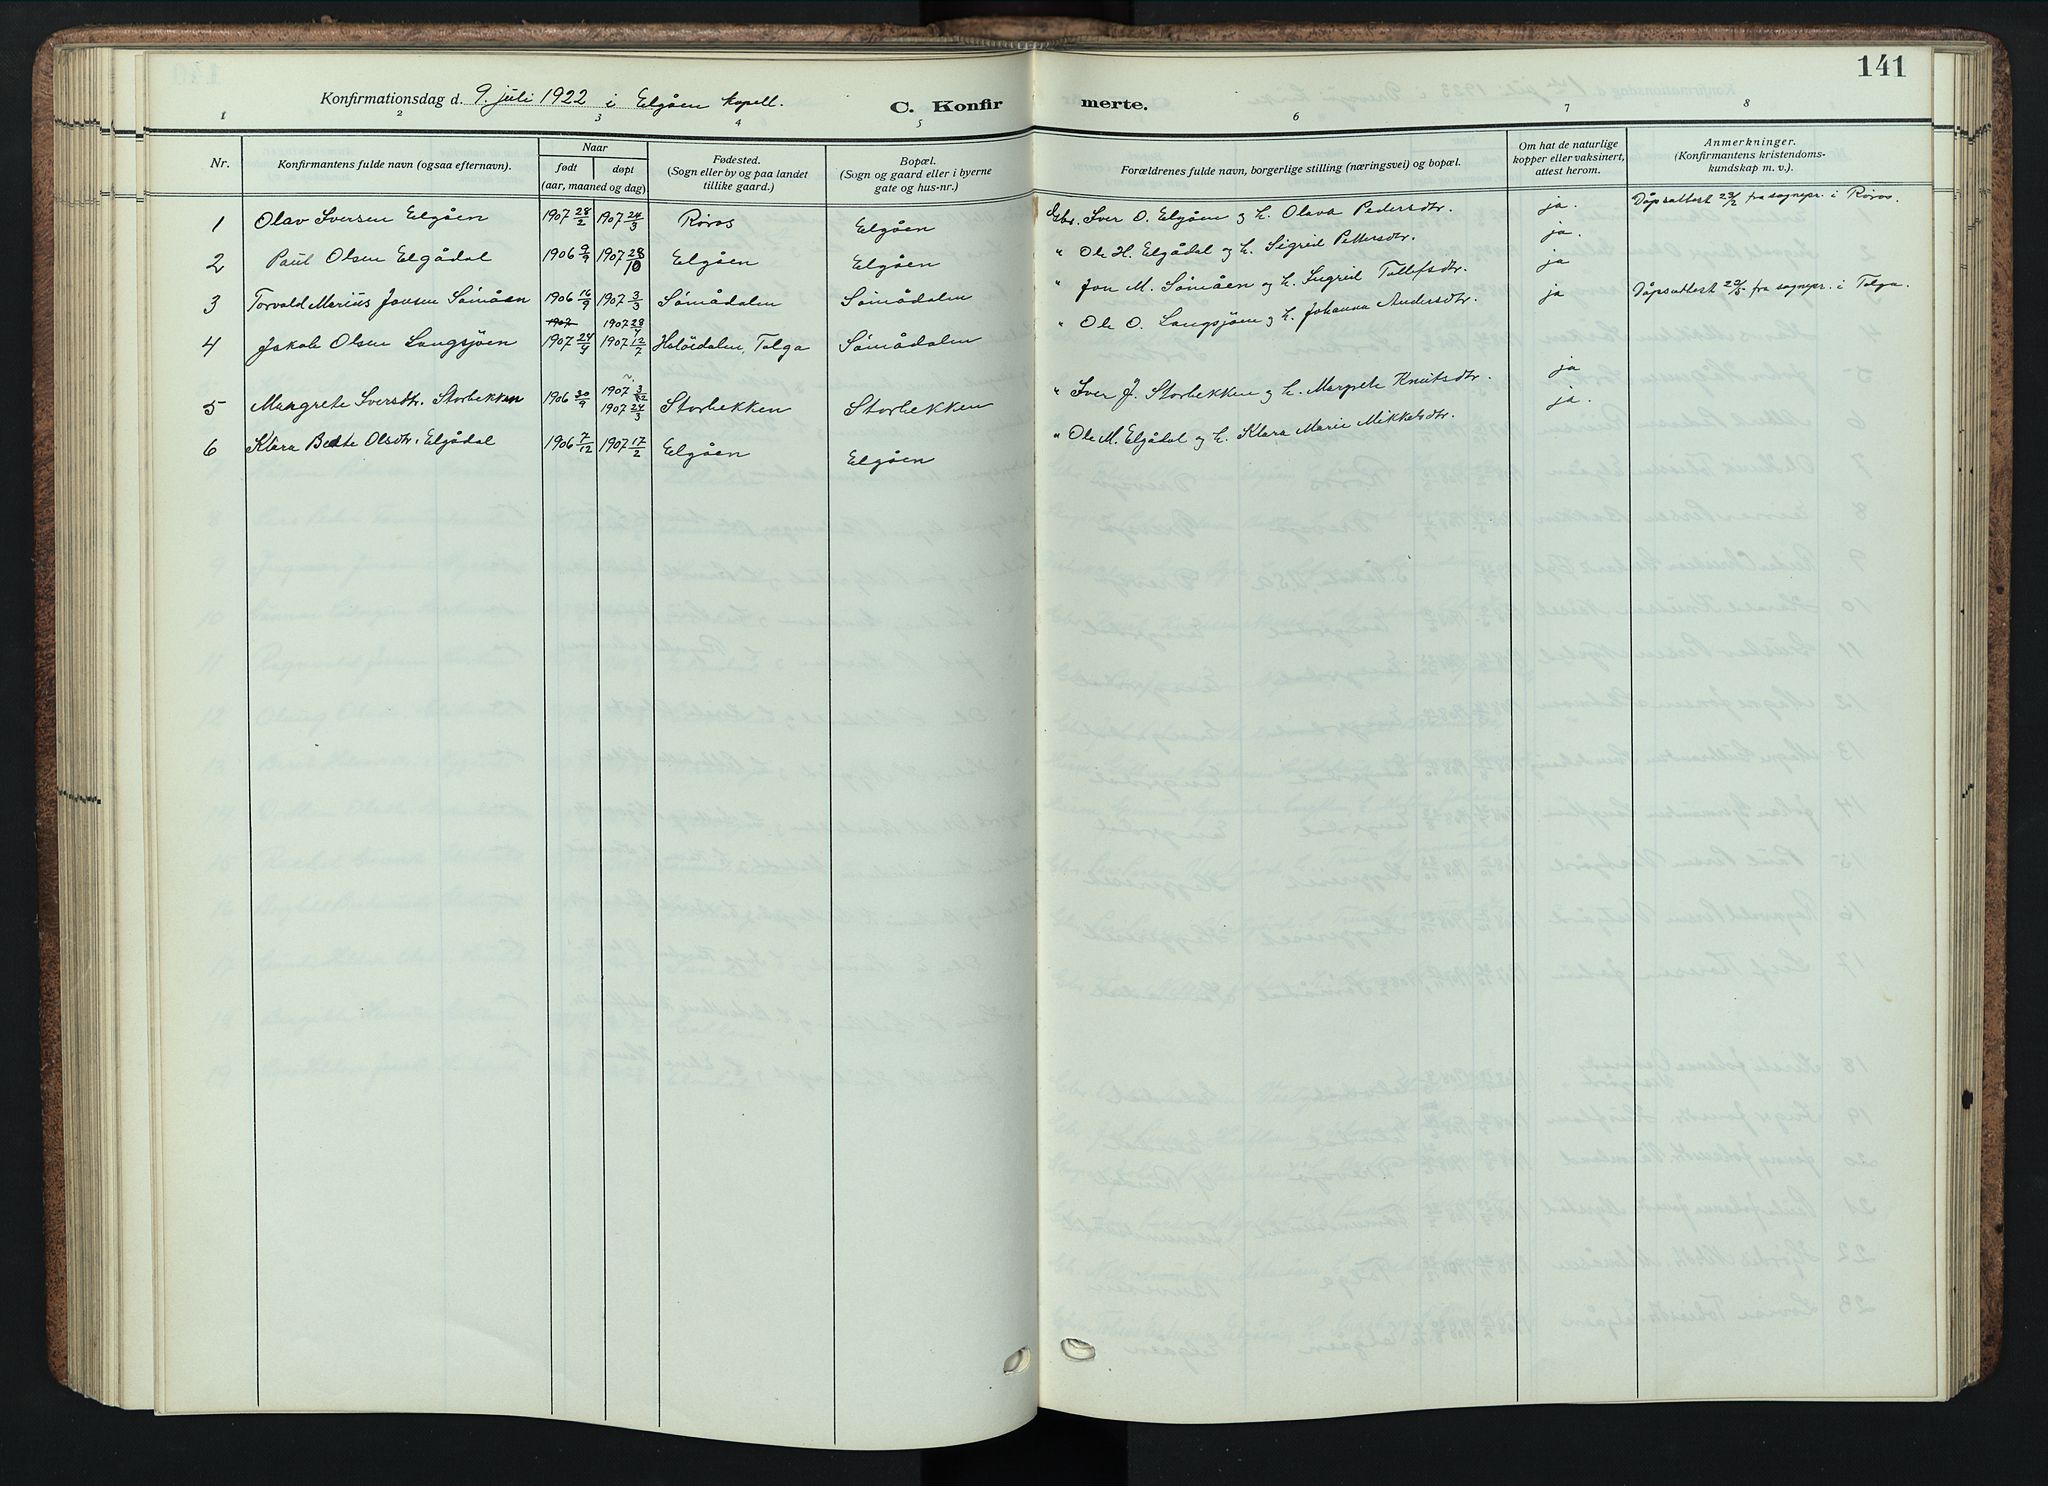 141
Konfirmationsdag d. 9. juli 1922 i Elgåen kapell. C. Konfirmerte.
1 2 3 4 5 6 7 8
Nr. Konfirmantens fulde navn (ogsaa efternavn). Naar født døpt (aar, maaned og dag) Fødested. (Sogn eller by og paa landet tillike gaard.) Bopæl. (Sogn og gaard eller i byerne gate og hus-nr.) Forældrenes fulde navn, borgerlige stilling (næringsvei) og bopæl. Om hat de naturlige kopper eller vaksinert, attest herom. Anmerkninger. (Konfirmantens kristendomskundskap m. v.)
1 Olav Iversen Elgåen 1907 28/2 1907 24/3 Røros Elgåen Gbr. Iver O. Elgåen og h. Olava Pedersdtr. ja. Dåpsattest fra sognepr. i Røros.
2 Paul Olsen Elgådal 1906 9/9 1907 28/10 Elgåen Elgåen " Ole H. Elgådal og h. Sigrid Pettersdtr. ja.
3 Torvald Marius Jonsen Sømåen 1906 16/9 1907 3/3 Sømådalen Sømådalen " Jon M. Sømåen og h. Ingrid Tollefsdtr. ja
4 Jakob Olsen Langsjøen 1907 1907 24/4 1907 28/4 1907 12/7 Holøidalen, Tolga Sømådalen " Ole O. Langsjøen og h. Johanna Andersdtr. ja Dåpsattest fra sognepr. i Tolga.
5 Margrete Iversdtr. Storbekken 1906 30/9 1907 3/2 1907 24/3 Storbekken Storbekken " Iver J. Storbekken og h. Margrete Knutsdtr. ja
6 Klara Olsdtr. Elgådal 1906 7/12 1907 17/2 Elgåen Elgåen " Ole M. Elgådal og h. Klara Marie Mikkelsdtr. ja.